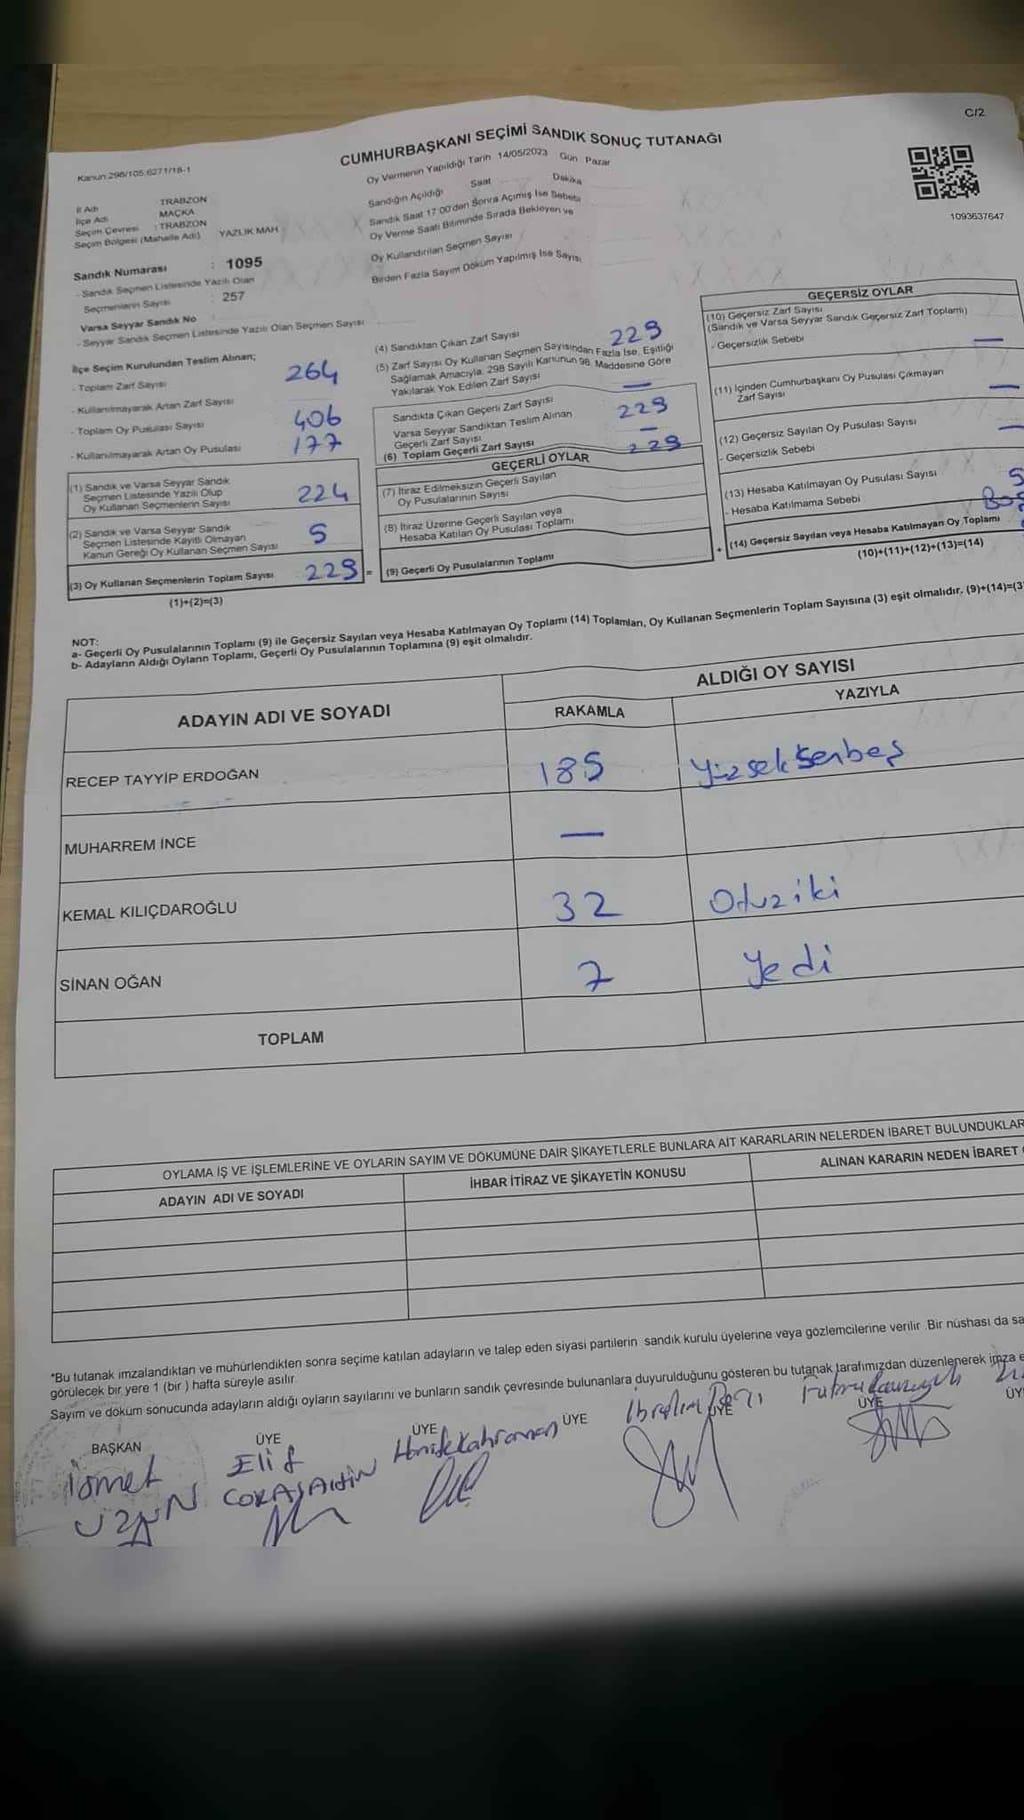 C/2
CUMHURBAŞKANI SEÇİMİ SANDIK SONUÇ TUTANAĞI
Kanun 298/105,6271/18-1
Oy Vermenin Yapıldığı Tarih 14/05/2023 Gün Pazar
Sandığın Açıldığı Saat Dakika
Sandık Saat 17:00'den Sonra Açımış İse Sebebi
Oy Verme Saati Bitiminde Sırada Bekleyen ve
Oy Kullandırılan Seçmen Sayısı
Birden Fazla Sayım Döküm Yapılmış İse Sayısı
1093637647
İl Adı : TRABZON
İlçe Adı : MAÇKA
Seçim Çevresi : TRABZON
Seçim Bölgesi (Mahalle Adı) YAZLIK MAH
Sandık Numarası : 1095
- Sandık Seçmen Listesinde Yazılı Olan
Seçmenlerin Sayısı : 257
Varsa Seyyar Sandık No
- Seyyar Sandık Seçmen Listesinde Yazılı Olan Seçmen Sayısı
İlçe Seçim Kurulundan Teslim Alınan;
- Toplam Zarf Sayısı 264
- Kullanılmayarak Artan Zarf Sayısı
- Toplam Oy Pusulası Sayısı 406
- Kullanılmayarak Artan Oy Pusulası 177
(1) Sandık ve Varsa Seyyar Sandık
Seçmen Listesinde Yazılı Olup
Oy Kullanan Seçmenlerin Sayısı 224
(2) Sandık ve Varsa Seyyar Sandık
Seçmen Listesinde Kayıtlı Olmayan
Kanun Gereği Oy Kullanan Seçmen Sayısı 5
(3) Oy Kullanan Seçmenlerin Toplam Sayısı 229 =
(1)+(2)=(3)
(4) Sandıktan Çıkan Zarf Sayısı 229
(5) Zarf Sayısı Oy Kullanan Seçmen Sayısından Fazla İse, Eşitliği
Sağlamak Amacıyla, 298 Sayılı Kanunun 98. Maddesine Göre
Yakılarak Yok Edilen Zarf Sayısı —
Sandıkta Çıkan Geçerli Zarf Sayısı 229
Varsa Seyyar Sandıktan Teslim Alınan
Geçerli Zarf Sayısı —
(6) Toplam Geçerli Zarf Sayısı 229
GEÇERLİ OYLAR
(7) İtiraz Edilmeksizin Geçerli Sayılan
Oy Pusulalarının Sayısı
(8) İtiraz Üzerine Geçerli Sayılan veya
Hesaba Katılan Oy Pusulası Toplamı
(9) Geçerli Oy Pusulalarının Toplamı +
GEÇERSİZ OYLAR
(10) Geçersiz Zarf Sayısı
(Sandık ve Varsa Seyyar Sandık Geçersiz Zarf Toplamı)
- Geçersizlik Sebebi —
(11) İçinden Cumhurbaşkanı Oy Pusulası Çıkmayan
Zarf Sayısı —
(12) Geçersiz Sayılan Oy Pusulası Sayısı —
- Geçersizlik Sebebi
(13) Hesaba Katılmayan Oy Pusulası Sayısı 5
- Hesaba Katılmama Sebebi
(14) Geçersiz Sayılan veya Hesaba Katılmayan Oy Toplamı
(10)+(11)+(12)+(13)=(14)
NOT:
a- Geçerli Oy Pusulalarının Toplamı (9) ile Geçersiz Sayılan veya Hesaba Katılmayan Oy Toplamı (14) Toplamları, Oy Kullanan Seçmenlerin Toplam Sayısına (3) eşit olmalıdır. (9)+(14)=(3
b- Adayların Aldığı Oyların Toplamı, Geçerli Oy Pusulalarının Toplamına (9) eşit olmalıdır.
ADAYIN ADI VE SOYADI
ALDIĞI OY SAYISI
RAKAMLA YAZIYLA
RECEP TAYYİP ERDOĞAN 185 Yüzseksenbeş
MUHARREM İNCE —
KEMAL KILIÇDAROĞLU 32 Otuziki
SİNAN OĞAN 7 Yedi
TOPLAM
OYLAMA İŞ VE İŞLEMLERİNE VE OYLARIN SAYIM VE DÖKÜMÜNE DAİR ŞİKAYETLERLE BUNLARA AİT KARARLARIN NELERDEN İBARET BULUNDUKLAR
ADAYIN ADI VE SOYADI İHBAR İTİRAZ VE ŞİKAYETİN KONUSU ALINAN KARARIN NEDEN İBARET
*Bu tutanak imzalandıktan ve mühürlendikten sonra seçime katılan adayların ve talep eden siyasi partilerin sandık kurulu üyelerine veya gözlemcilerine verilir. Bir nüshası da sa
görülecek bir yere 1 (bir ) hafta süreyle asılır.
Sayım ve döküm sonucunda adayların aldığı oyların sayılarını ve bunların sandık çevresinde bulunanlara duyurulduğunu gösteren bu tutanak tarafımızdan düzenlenerek imza e
BAŞKAN ÜYE ÜYE ÜYE ÜYE ÜYE ÜY
İsmet UZUN
Elif